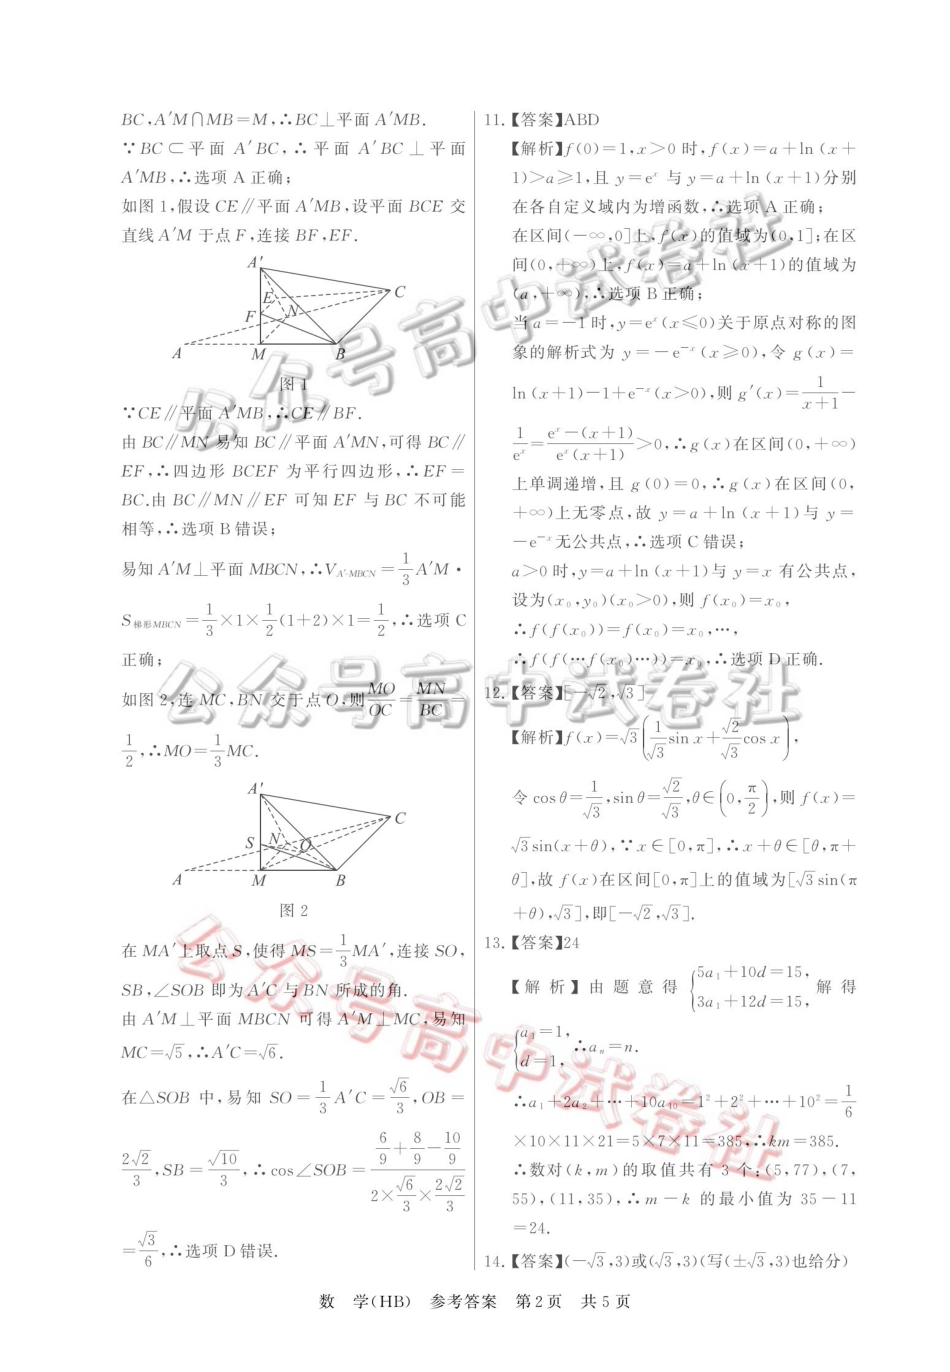 BC,A′M∩MB=M,∴BC⊥平面 A′MB.
∵BC⊂平面 A′BC,∴平面 A′BC⊥平面
A′MB,∴选项 A 正确;
如图 1,假设 CE∥平面 A′MB,设平面 BCE 交
直线 A′M 于点 F,连接 BF,EF.
A′
E
C
F
N
A
M
B
图 1
∵CE∥平面 A′MB,∴CE∥BF.
由 BC∥MN 易知 BC∥平面 A′MN,可得 BC∥
EF,∴四边形 BCEF 为平行四边形,∴EF=
BC.由 BC∥MN∥EF 可知 EF 与 BC 不可能
相等,∴选项 B 错误;
易知 A′M⊥平面 MBCN,∴V_{A′-MBCN}=1/3 A′M·
S_{梯形MBCN}=1/3×1×1/2(1+2)×1=1/2,∴选项 C
正确;
如图 2,连 MC,BN 交于点 O,则 MO/OC=MN/BC=
1/2,∴MO=1/3 MC.
A′
C
S
N
O
A
M
B
图 2
在 MA′上取点 S,使得 MS=1/3 MA′,连接 SO,
SB,∠SOB 即为 A′C 与 BN 所成的角.
由 A′M⊥平面 MBCN 可得 A′M⊥MC,易知
MC=√5,∴A′C=√6.
在△SOB 中,易知 SO=1/3 A′C=√6/3,OB=
2√2/3,SB=√10/3,∴cos∠SOB=(6/9+8/9-10/9)/(2×√6/3×2√2/3)
=√3/6,∴选项 D 错误.
11.【答案】ABD
【解析】f(0)=1,x>0 时,f(x)=a+ln(x+
1)>a≥1,且 y=e^x 与 y=a+ln(x+1)分别
在各自定义域内为增函数,∴选项 A 正确;
在区间(-∞,0]上,f(x)的值域为(0,1];在区
间(0,+∞)上,f(x)=a+ln(x+1)的值域为
(a,+∞),∴选项 B 正确;
当 a=-1 时,y=e^x(x≤0)关于原点对称的图
象的解析式为 y=-e^{-x}(x≥0),令 g(x)=
ln(x+1)-1+e^{-x}(x>0),则 g′(x)=1/(x+1)-
1/e^x=(e^x-(x+1))/(e^x(x+1))>0,∴g(x)在区间(0,+∞)
上单调递增,且 g(0)=0,∴g(x)在区间(0,
+∞)上无零点,故 y=a+ln(x+1)与 y=
-e^{-x}无公共点,∴选项 C 错误;
a>0 时,y=a+ln(x+1)与 y=x 有公共点,
设为(x₀,y₀)(x₀>0),则 f(x₀)=x₀,
∴f(f(x₀))=f(x₀)=x₀,…,
∴f(f(…f(x₀)…))=x₀,∴选项 D 正确.
12.【答案】[-√2,√3]
【解析】f(x)=√3(1/√3 sin x+√2/√3 cos x),
令 cos θ=1/√3,sin θ=√2/√3,θ∈(0,π/2),则 f(x)=
√3sin(x+θ),∵x∈[0,π],∴x+θ∈[θ,π+
θ],故 f(x)在区间[0,π]上的值域为[√3sin(π
+θ),√3],即[-√2,√3].
13.【答案】24
【解析】由题意得{5a₁+10d=15, 3a₁+12d=15,解得
{a₁=1, d=1,∴aₙ=n.
∴a₁+2a₂+…+10a₁₀=1²+2²+…+10²=1/6
×10×11×21=5×7×11=385,∴km=385.
∴数对(k,m)的取值共有 3 个:(5,77),(7,
55),(11,35),∴m-k 的最小值为 35-11
=24.
14.【答案】(-√3,3)或(√3,3)(写(±√3,3)也给分)
数 学(HB) 参考答案 第2页 共5页
公众号高中试卷社
公众号高中试卷社
公众号高中试卷社